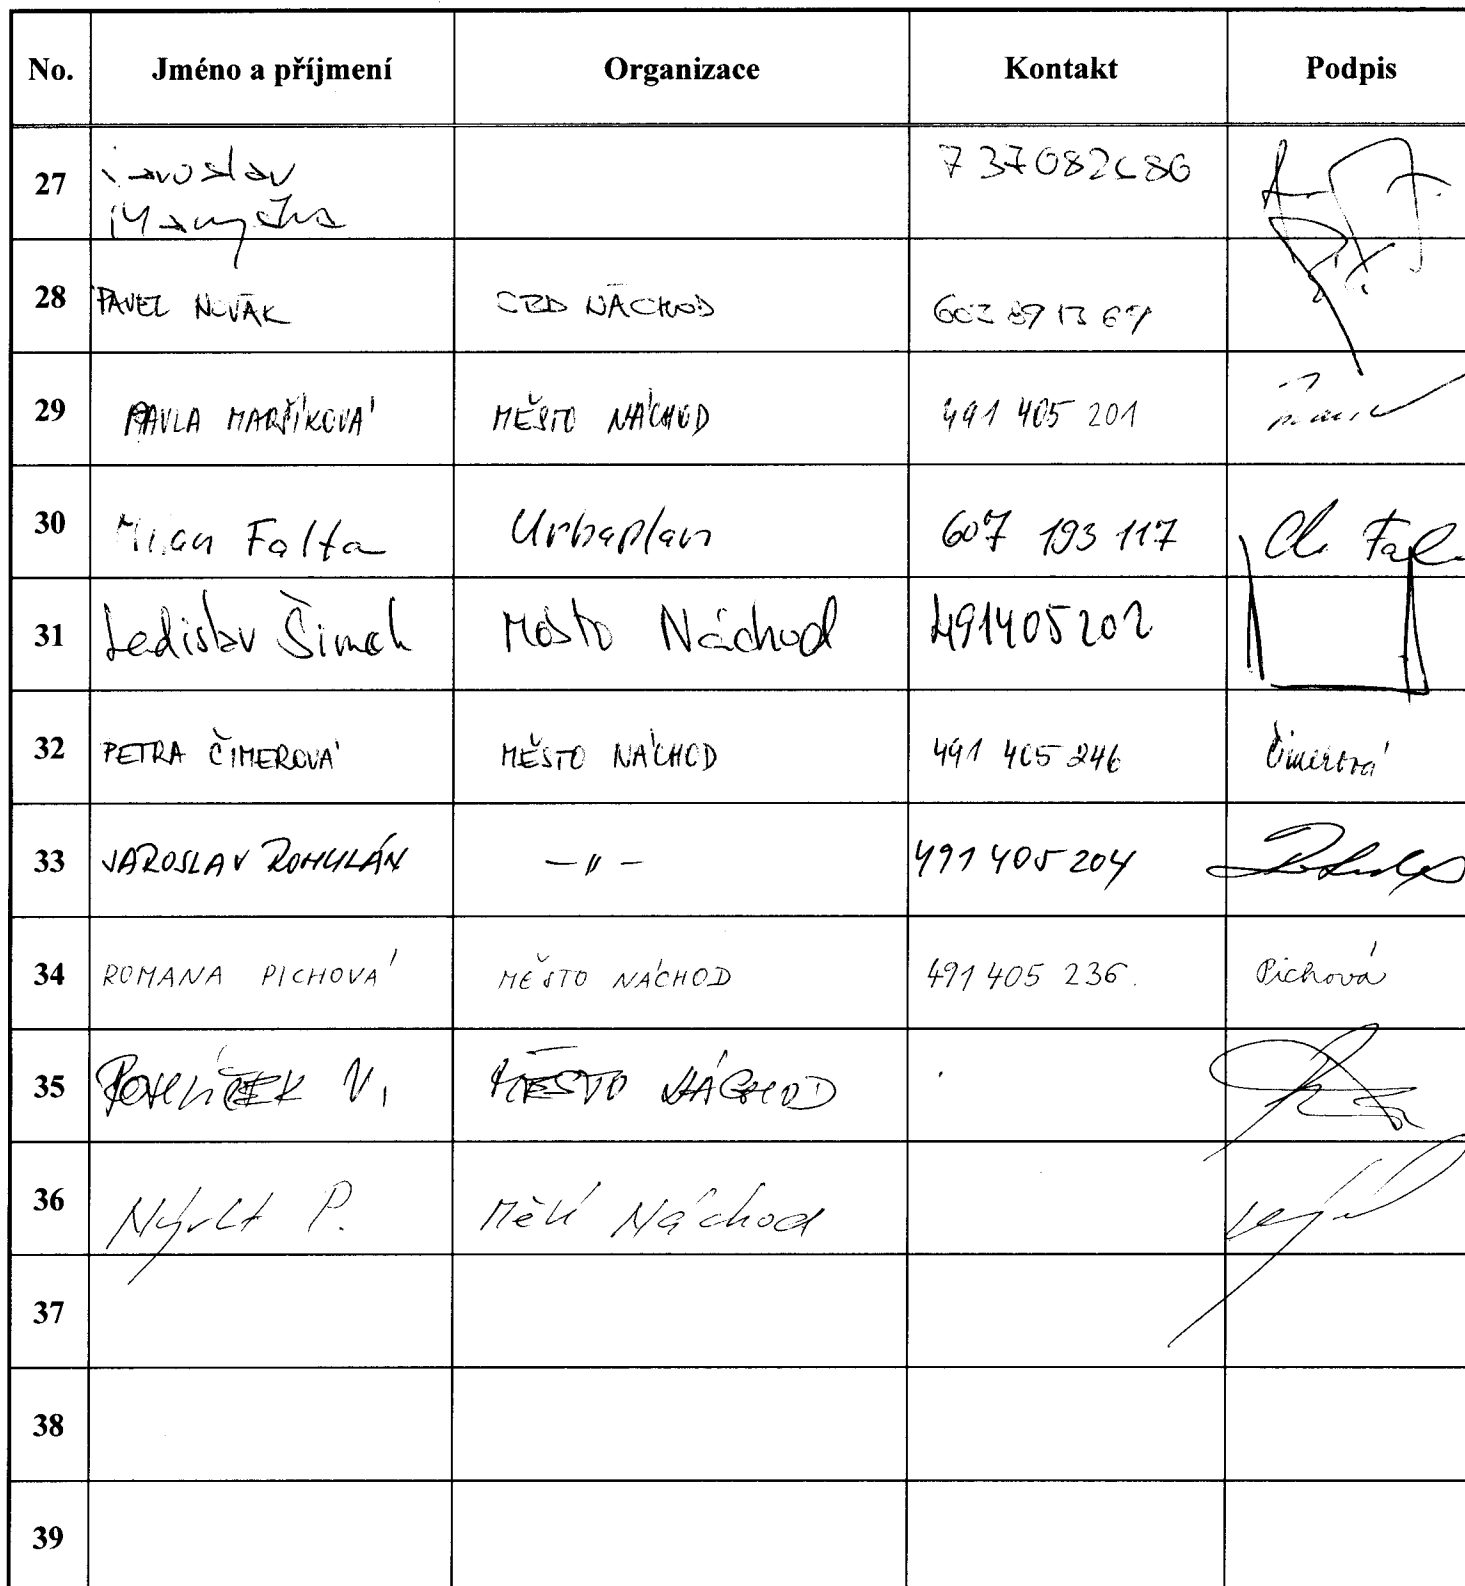 No. Jméno a příjmení Organizace Kontakt Podpis
27 Jaroslav
28 PAVEL NOVÁK CZD NÁCHOD
29 PAVLA MARŠÍKOVÁ MĚSTO NÁCHOD 491 405 201
30 Milan Falta Urbaplan 607 193 117
31 Ladislav Šimek Město Náchod 491405202
32 PETRA ČIMEROVÁ MĚSTO NÁCHOD 491 405 246 Čimerová
33 JAROSLAV ROHULÁN — " — 491 405 204
34 ROMANA PICHOVÁ MĚSTO NÁCHOD 491 405 236. Pichová
35 V. MĚSTO NÁCHOD
36 Nývlt P. MěÚ Náchod
37
38
39